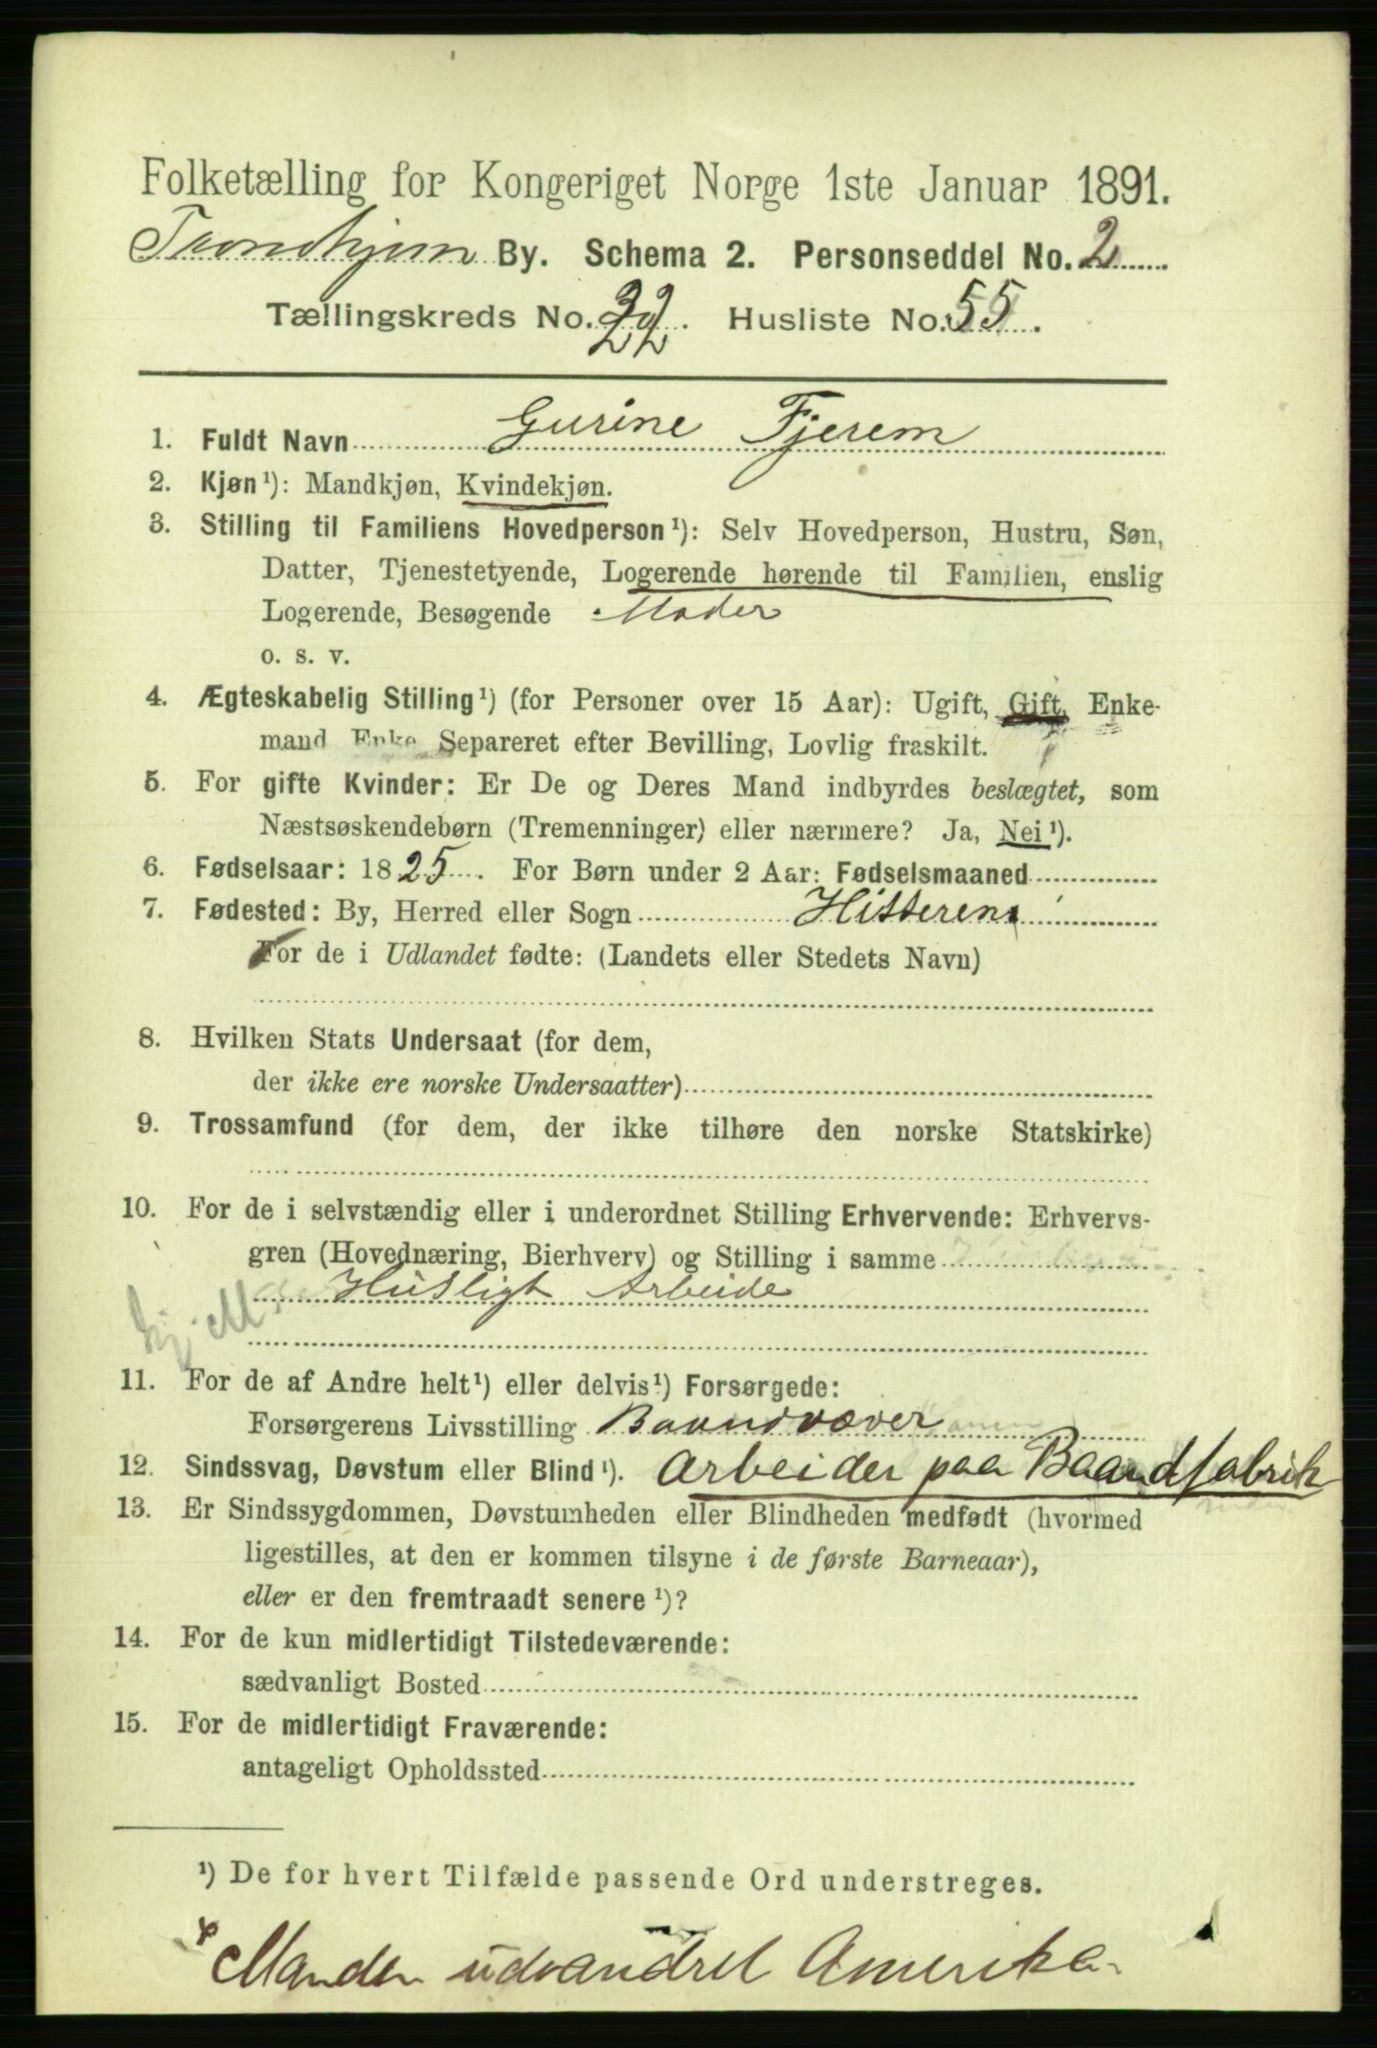 Folketælling for Kongeriget Norge 1ste Januar 1891.
Trondhjem By. Schema 2. Personseddel No. 2
Tællingskreds No. 22. Husliste No. 55.
1. Fuldt Navn Gurine Fjerem
2. Kjøn¹): Mandkjøn, Kvindekjøn.
3. Stilling til Familiens Hovedperson¹): Selv Hovedperson, Hustru, Søn,
Datter, Tjenestetyende, Logerende hørende til Familien, enslig
Logerende, Besøgende Moder
o. s. v.
4. Ægteskabelig Stilling¹) (for Personer over 15 Aar): Ugift, Gift, Enke-
mand Enke Separeret efter Bevilling, Lovlig fraskilt.
5. For gifte Kvinder: Er De og Deres Mand indbyrdes beslægtet, som
Næstsøskendebørn (Tremenninger) eller nærmere? Ja, Nei¹).
6. Fødselsaar: 1825. For Børn under 2 Aar: Fødselsmaaned
7. Fødested: By, Herred eller Sogn Hitteren
For de i Udlandet fødte: (Landets eller Stedets Navn)
8. Hvilken Stats Undersaat (for dem,
der ikke ere norske Undersaatter)
9. Trossamfund (for dem, der ikke tilhøre den norske Statskirke)
10. For de i selvstændig eller i underordnet Stilling Erhvervende: Erhvervs-
gren (Hovednæring, Bierhverv) og Stilling i samme
Husligt Arbeide
11. For de af Andre helt¹) eller delvis¹) Forsørgede:
Forsørgerens Livsstilling Baandvæver
12. Sindssvag, Døvstum eller Blind¹). Arbeider paa Baandfabrik
13. Er Sindssygdommen, Døvstumheden eller Blindheden medfødt (hvormed
ligestilles, at den er kommen tilsyne i de første Barneaar),
eller er den fremtraadt senere¹)?
14. For de kun midlertidigt Tilstedeværende:
sædvanligt Bosted
15. For de midlertidigt Fraværende:
antageligt Opholdssted
¹) De for hvert Tilfælde passende Ord understreges.
Manden udvandret Amerika